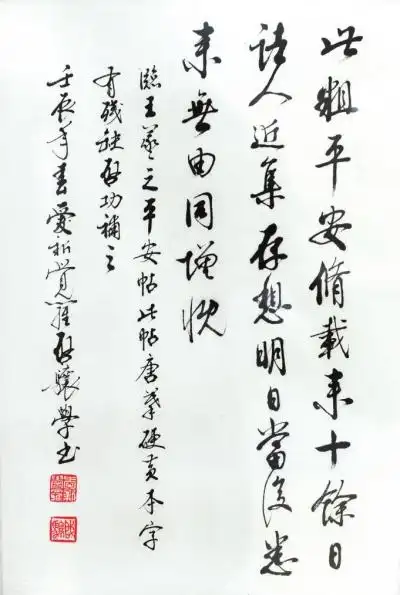 此粗平安脩載来十餘日
諸人近集存想明日當復悉
来無由同增慨
臨王羲之平安帖此帖唐摹硬黄本字
有殘缺啟功補之
壬辰年春愛新覺羅啟驤學書